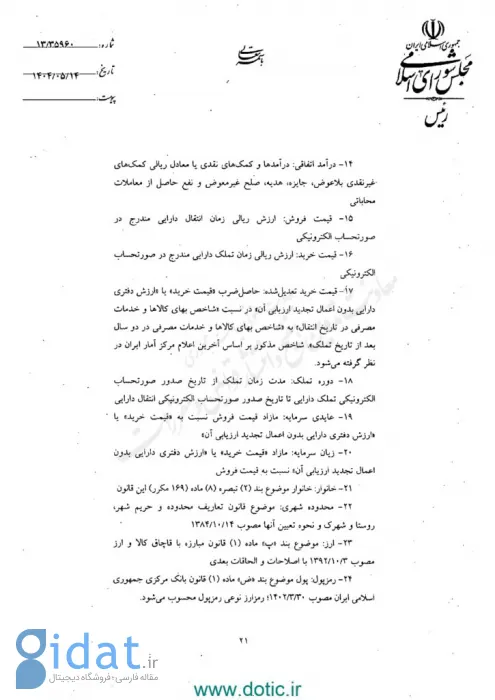 جمهوری اسلامی ایران
مجلس شورای اسلامی
رئیس
شماره: ۱۳/۳۵۹۶۰
تاریخ: ۱۴۰۴/۰۵/۱۴
پیوست:
۱۴- درآمد اتفاقی: درآمدها و کمک‌های نقدی یا معادل ریالی کمک‌های
غیرنقدی بلاعوض، جایزه، هدیه، صلح غیرمعوض و نفع حاصل از معاملات
محاباتی
۱۵- قیمت فروش: ارزش ریالی زمان انتقال دارایی مندرج در
صورتحساب الکترونیکی
۱۶- قیمت خرید: ارزش ریالی زمان تملک دارایی مندرج در صورتحساب
الکترونیکی
۱۷- قیمت خرید تعدیل‌شده: حاصل‌ضرب «قیمت خرید» یا «ارزش دفتری
دارایی بدون اعمال تجدید ارزیابی آن» در نسبت «شاخص بهای کالاها و خدمات
مصرفی در تاریخ انتقال» به «شاخص بهای کالاها و خدمات مصرفی در دو سال
بعد از تاریخ تملک». شاخص مذکور بر اساس آخرین اعلام مرکز آمار ایران در
نظر گرفته می‌شود.
۱۸- دوره تملک: مدت زمان تملک از تاریخ صدور صورتحساب
الکترونیکی تملک دارایی تا تاریخ صدور صورتحساب الکترونیکی انتقال دارایی
۱۹- عایدی سرمایه: مازاد قیمت فروش نسبت به «قیمت خرید» یا
«ارزش دفتری دارایی بدون اعمال تجدید ارزیابی آن»
۲۰- زیان سرمایه: مازاد «قیمت خرید» یا «ارزش دفتری دارایی بدون
اعمال تجدید ارزیابی آن» نسبت به قیمت فروش
۲۱- خانوار: خانوار موضوع بند (۲) تبصره (۸) ماده (۱۶۹ مکرر) این قانون
۲۲- محدوده شهری: موضوع قانون تعاریف محدوده و حریم شهر،
روستا و شهرک و نحوه تعیین آنها مصوب ۱۳۸۴/۱۰/۱۴
۲۳- ارز: موضوع بند «پ» ماده (۱) قانون مبارزه با قاچاق کالا و ارز
مصوب ۱۳۹۲/۱۰/۳ با اصلاحات و الحاقات بعدی
۲۴- رمزپول: پول موضوع بند «ض» ماده (۱) قانون بانک مرکزی جمهوری
اسلامی ایران مصوب ۱۴۰۲/۳/۳۰؛ رمزارز نوعی رمزپول محسوب می‌شود.
۲۱
gidat.ir
مقاله فارسی؛ فروشگاه دیجیتال
www.dotic.ir